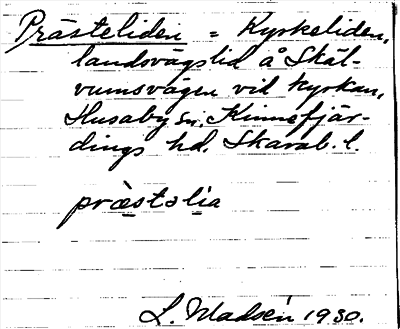 Prästeliden = Kyrkeliden,
landsvägslid å Skäl-
vumsvägen vid kyrkan,
Husaby sn, Kinnefjär-
dings hd. Skarab. l.
præstəlia
L. Madsén 1930.